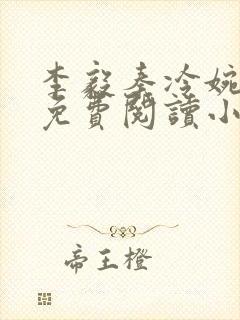 李毅秦冷婉
免費閱讀小
帝王橙